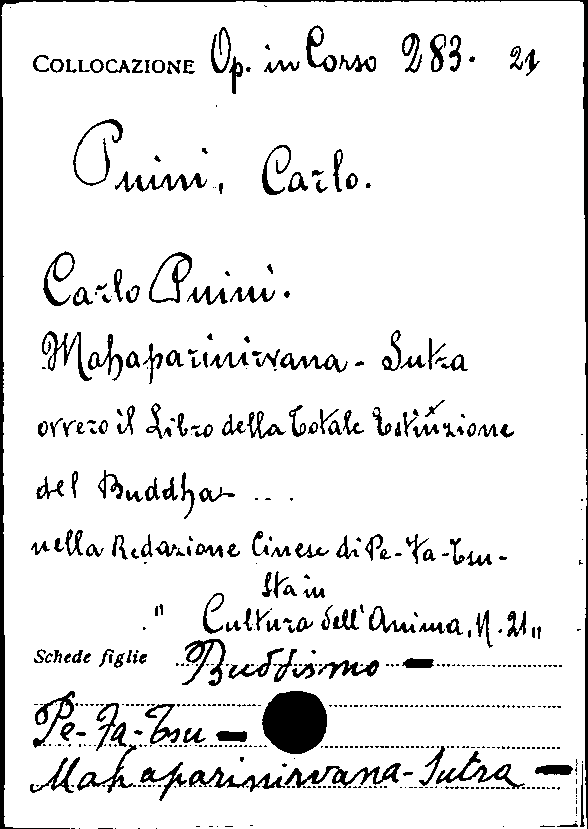 COLLOCAZIONE Op. in Corso 283. 21
Puini, Carlo.
Carlo Puini.
Mahaparinirvana - Sutra
ovvero il Libro della Totale Estinzione
del Buddha - ...
nella Redazione Cinese di Pe-Fa-Tsu-
Sta in
." Cultura dell'Anima, N. 21 "
Schede figlie Buddismo -
Pe-Fa-Tsu -
Mahaparinirvana-Sutra -